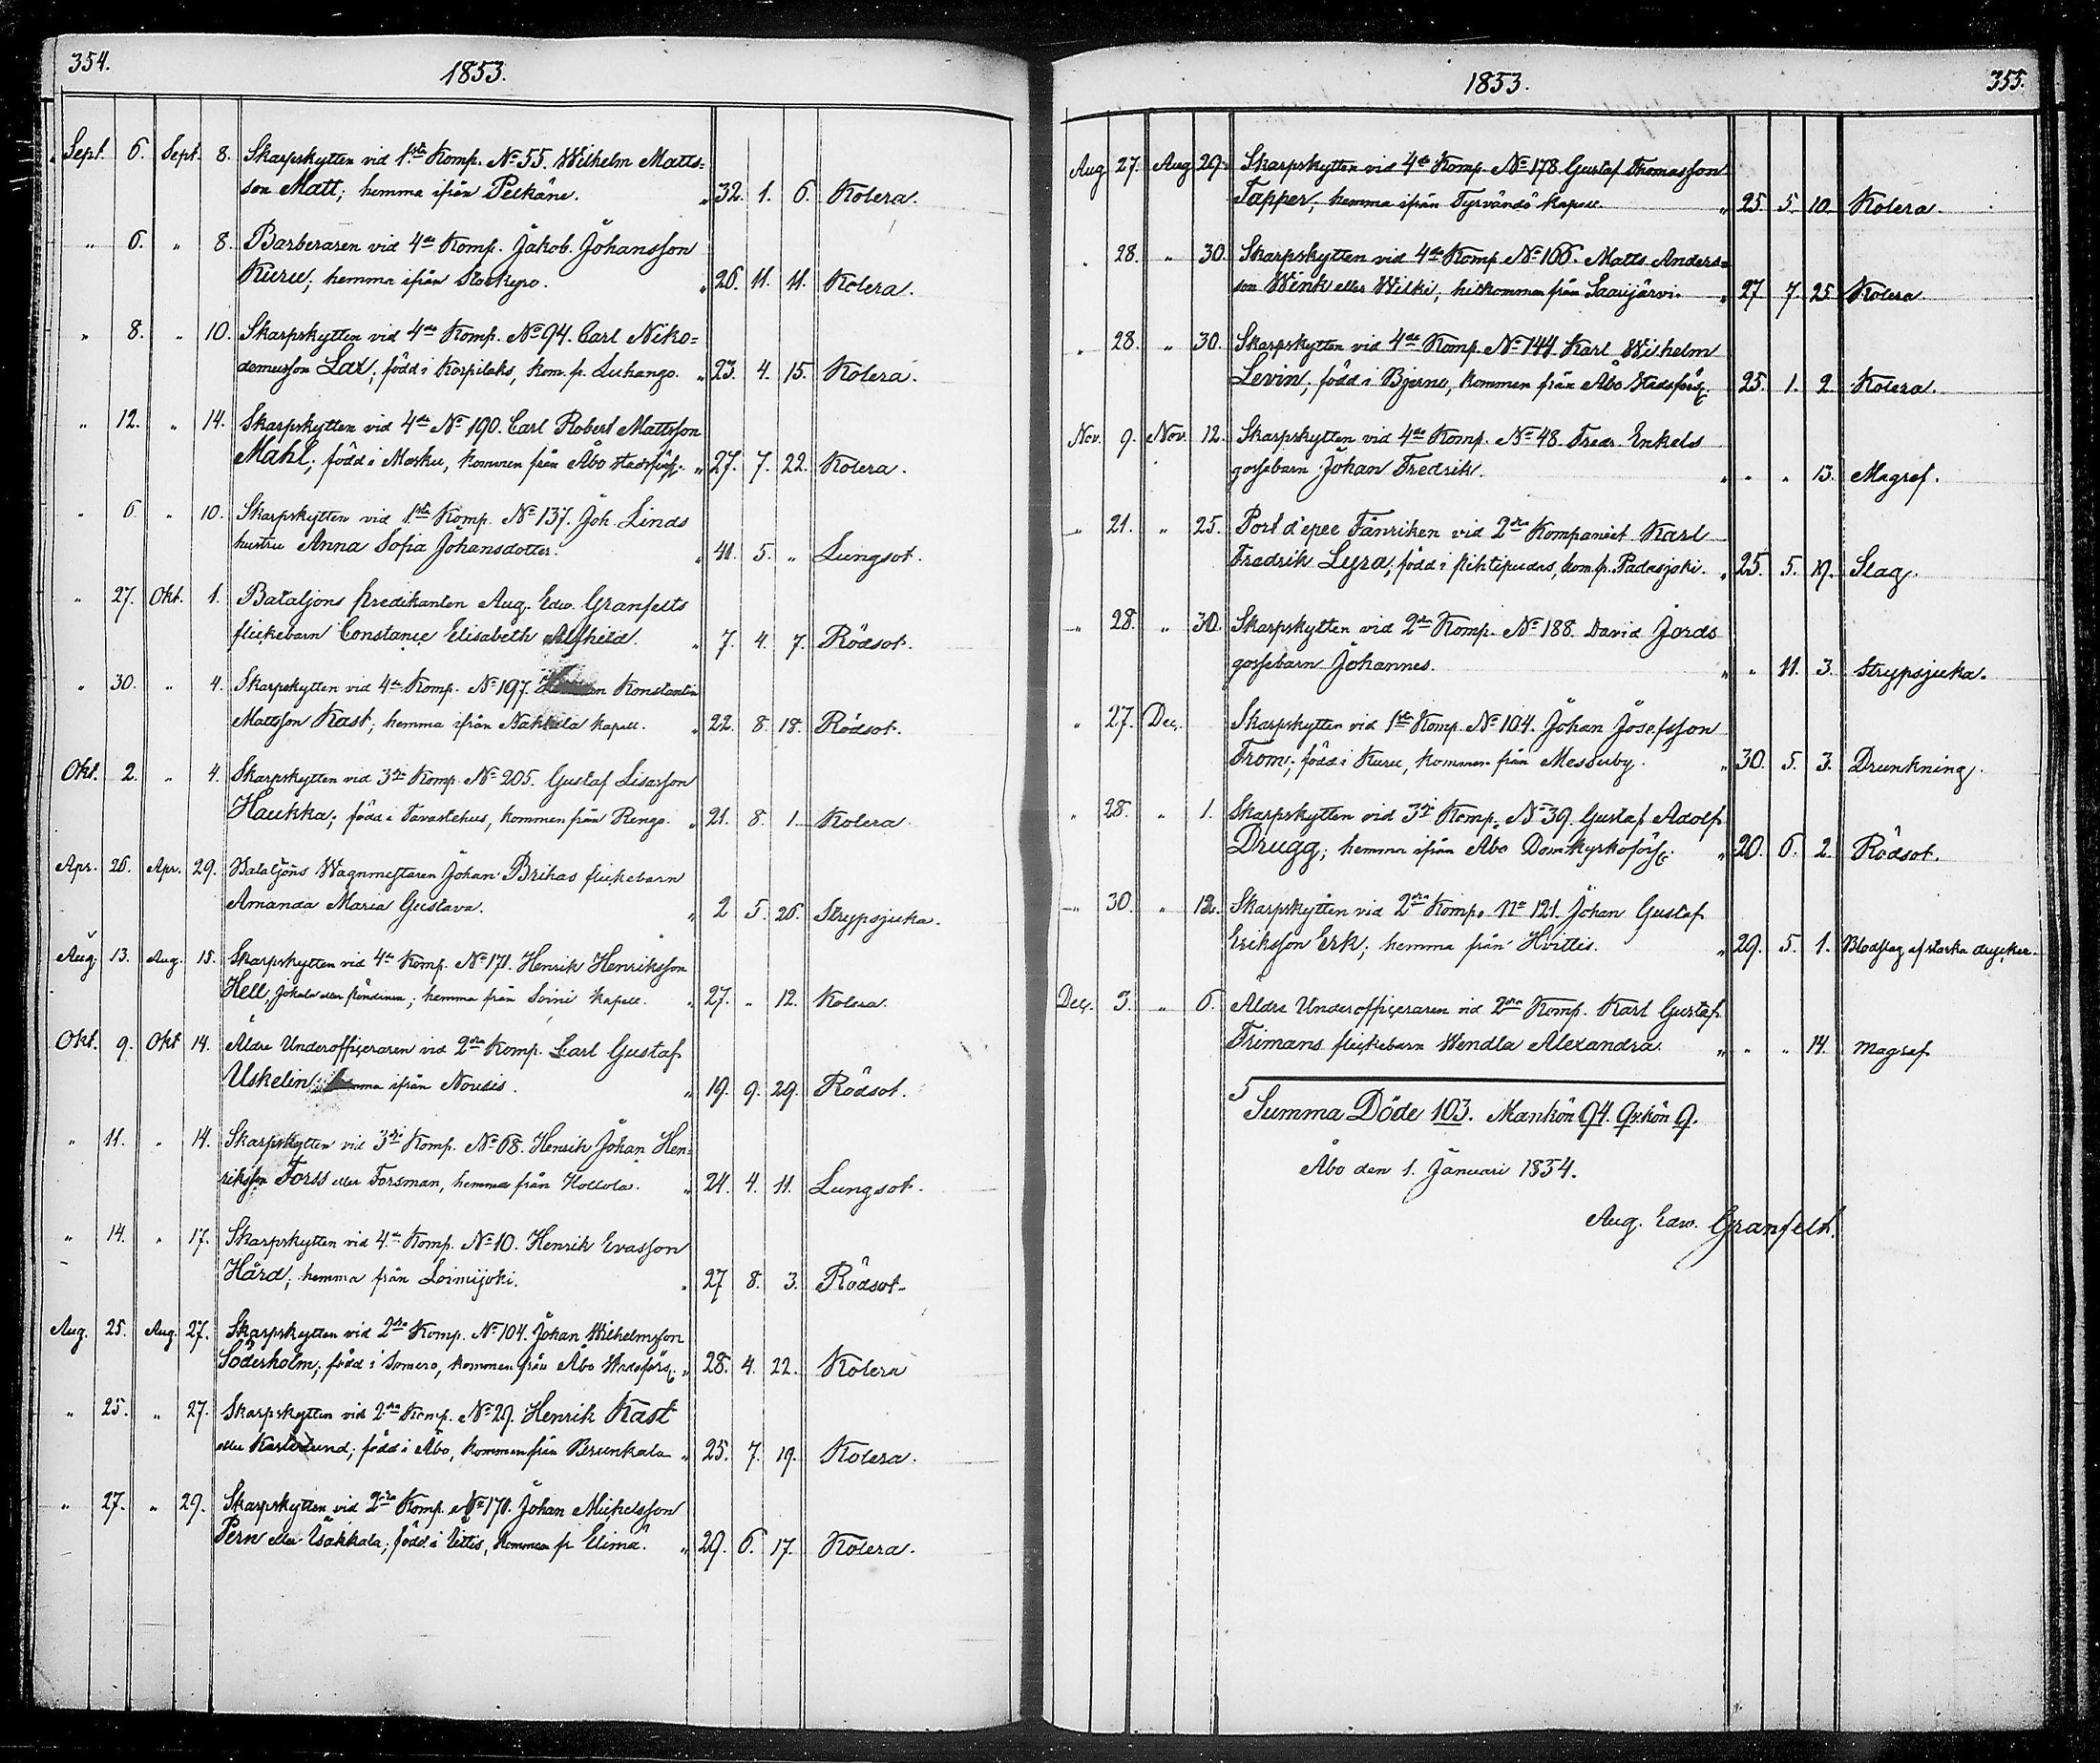 354.
1853.
Sept. 6. Sept. 8. Skarpskytten vid 1sta Komp. No 55. Wilhelm Matts=
son Matt; hemma ifrån Pelkäne. " 32. 1. 6. Kolera.
" 6. " 8. Barberaren vid 4de Komp. Jakob Johansson
Kuru; hemma ifrån Storkyro. " 26. 11. 11. Kolera.
" 8. " 10. Skarpskytten vid 4de Komp. No 94. Carl Niko=
demusson Lax; född i Korpilaks, kom. fr. Luhango. " 23. 4. 15. Kolera.
" 12. " 14. Skarpskytten vid 4de No 190. Carl Robert Mattsson
Mahl; född i Masku, kommen från Åbo stadsförs. " 27. 7. 22. Kolera.
" 6. " 10. Skarpskytten vid 1sta Komp. No 137. Joh. Linds
hustru Anna Sofia Johansdotter. " 41. 5. " Lungsot.
" 27. Okt. 1. Bataljons predikanten Aug. Edw. Granfelts
flickebarn Constance Elisabeth Alfhild. " 7. 4. 7. Rödsot.
" 30. " 4. Skarpskytten vid 4de Komp. No 197. Konstantin
Mattsson Kast; hemma ifrån Nakkila kapell. " 22. 8. 18. Rödsot.
Okt. 2. " 4. Skarpskytten vid 3dje Komp. No 205. Gustaf Lisasson
Haukka; född i Tavastehus, kommen från Rengo. " 21. 8. 1. Kolera
Apr. 26. Apr. 29. Bataljons Wagnmestaren Johan Brikas flickebarn
Amanda Maria Gustava. " 2 5. 26. Strypsjuka.
Aug. 13. Aug. 15. Skarpskytten vid 4de Komp. No 171. Henrik Henriksson
Hell, eller; hemma från Soini kapell. " 27. " 12. Kolera.
Okt. 9. Okt 14. Äldre Underofficeraren vid 2dra Komp. Carl Gustaf
Uskelin; hemma ifrån Nousis. " 19. 9. 29. Rödsot.
" 11. " 14. Skarpskytten vid 3dje Komp. No 68. Henrik Johan Hen=
riksson Forss eller Forsman, hemma från Hollola. " 24. 4. 11. Lungsot.
" 14. " 17. Skarpskytten vid 4de Komp. No 10. Henrik Evasson
Hård; hemma från Loimijoki. " 27 8. 3. Rödsot.
Aug. 25. Aug. 27. Skarpskytten vid 2dra Komp. No 104. Johan Wilhelmsson
Söderholm; född i Somero, kommen från Åbo Stadsförs. " 28. 4. 22. Kolera
" 25. " 27. Skarpskytten vid 2dra Komp. No 29. Henrik Kast
eller Karlslund; född i Åbo, kommen från Brunkala " 25. 7. 19. Kolera.
" 27. " 29. Skarpskytten vid 2dra Komp. No 171. Johan Mickelsson
Pern eller Isäkkala; född i Ittis, kommen fr Elimä. " 29. 6. 17. Kolera.
1853.
355.
Aug 27. Aug 29. Skarpskytten vid 4de Komp. No 178 Gustaf Thomasson
Tapper; hemma ifrån Tyrvändö kapell. " 25. 5. 10. Kolera.
" 28. " 30. Skarpskytten vid 4de Komp No 166. Matts Anders=
son Wink eller Wilki; hitkommen från Saarijärvi. " 27 7. 25 Kolera
" 28. " 30. Skarpskytten vid 4de Komp. No 144 Karl Wilhelm
Levin; född i Bjerno, kommen från Åbo Stadsförs. 25. 1. 2 Kolera.
Nov. 9. Nov. 12. Skarpskytten vid 4de Komp. No 48. Fredr. Enkels
gossebarn Johan Fredrik. " " " 13. Magref.
" 21. " 25. Port d'epee Fänriken vid 2dra Kompaniet Karl
Fredrik Lyra; född i Pihtipudas, kom. fr. Padasjoki. " 25. 5. 19. Slag.
" 28. " 30. Skarpskytten vid 2dra Komp. No 188. David Jords
gossebarn Johannes. " " 11. 3. Strypsjuka.
" 27. Dec. Skarpskytten vid 1sta Komp. No 104. Johan Josefsson
From; född i Kuru, kommen från Messuby. " 30. 5. 3. Drunkning.
" 28. " 1. Skarpskytten vid 3dje Komp. No 39. Gustaf Adolf
Drugg; hemma ifrån Åbo Domkyrkoförs. " 20. 6. 2. Rödsot.
" 30. " 12. Skarpskytten vid 2dra Komp. No 121. Johan Gustaf
Eriksson Erk; hemma från Hvittis. " 29. 5. 1. Blodslag af starka drycker.
Dec. 3. " 6. Äldre Underofficeraren vid 2dra Komp. Karl Gustaf
Frimans flickebarn Wendla Alexandra. " " " 14. Magref
Summa Döde 103. Mankön 94. Qvkön 9.
Åbo den 1. Januari 1854.
Aug. Edw. Granfelt.